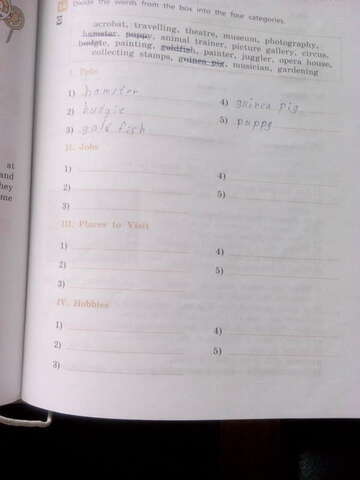 Divide the words from the box into the four categories.
acrobat, travelling, theatre, museum, photography,
hamster, puppy, animal trainer, picture gallery, circus,
budgie, painting, goldfish, painter, juggler, opera house,
collecting stamps, guinea pig, musician, gardening
I. Pets
1) hamster
2) budgie
3) gold fish
4) guinea pig
5) puppy
II. Jobs
1)
2)
3)
4)
5)
III. Places to Visit
1)
2)
3)
4)
5)
IV. Hobbies
1)
2)
3)
4)
5)
at
and
hey
me